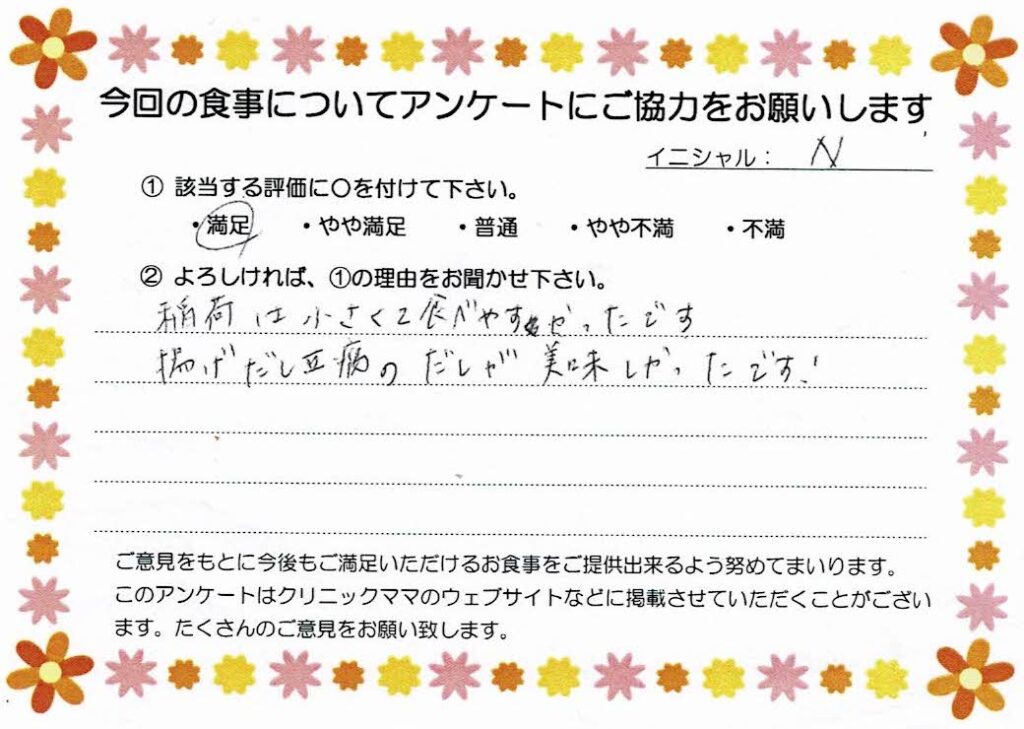 今回の食事についてアンケートにご協力をお願いします
イニシャル： N
① 該当する評価に〇を付けて下さい。
・満足 ・やや満足 ・普通 ・やや不満 ・不満
② よろしければ、①の理由をお聞かせ下さい。
稲荷は小さくて食べやすかったです
揚げだし豆腐のだしが美味しかったです！
ご意見をもとに今後もご満足いただけるお食事をご提供出来るよう努めてまいります。
このアンケートはクリニックママのウェブサイトなどに掲載させていただくことがござい
ます。たくさんのご意見をお願い致します。